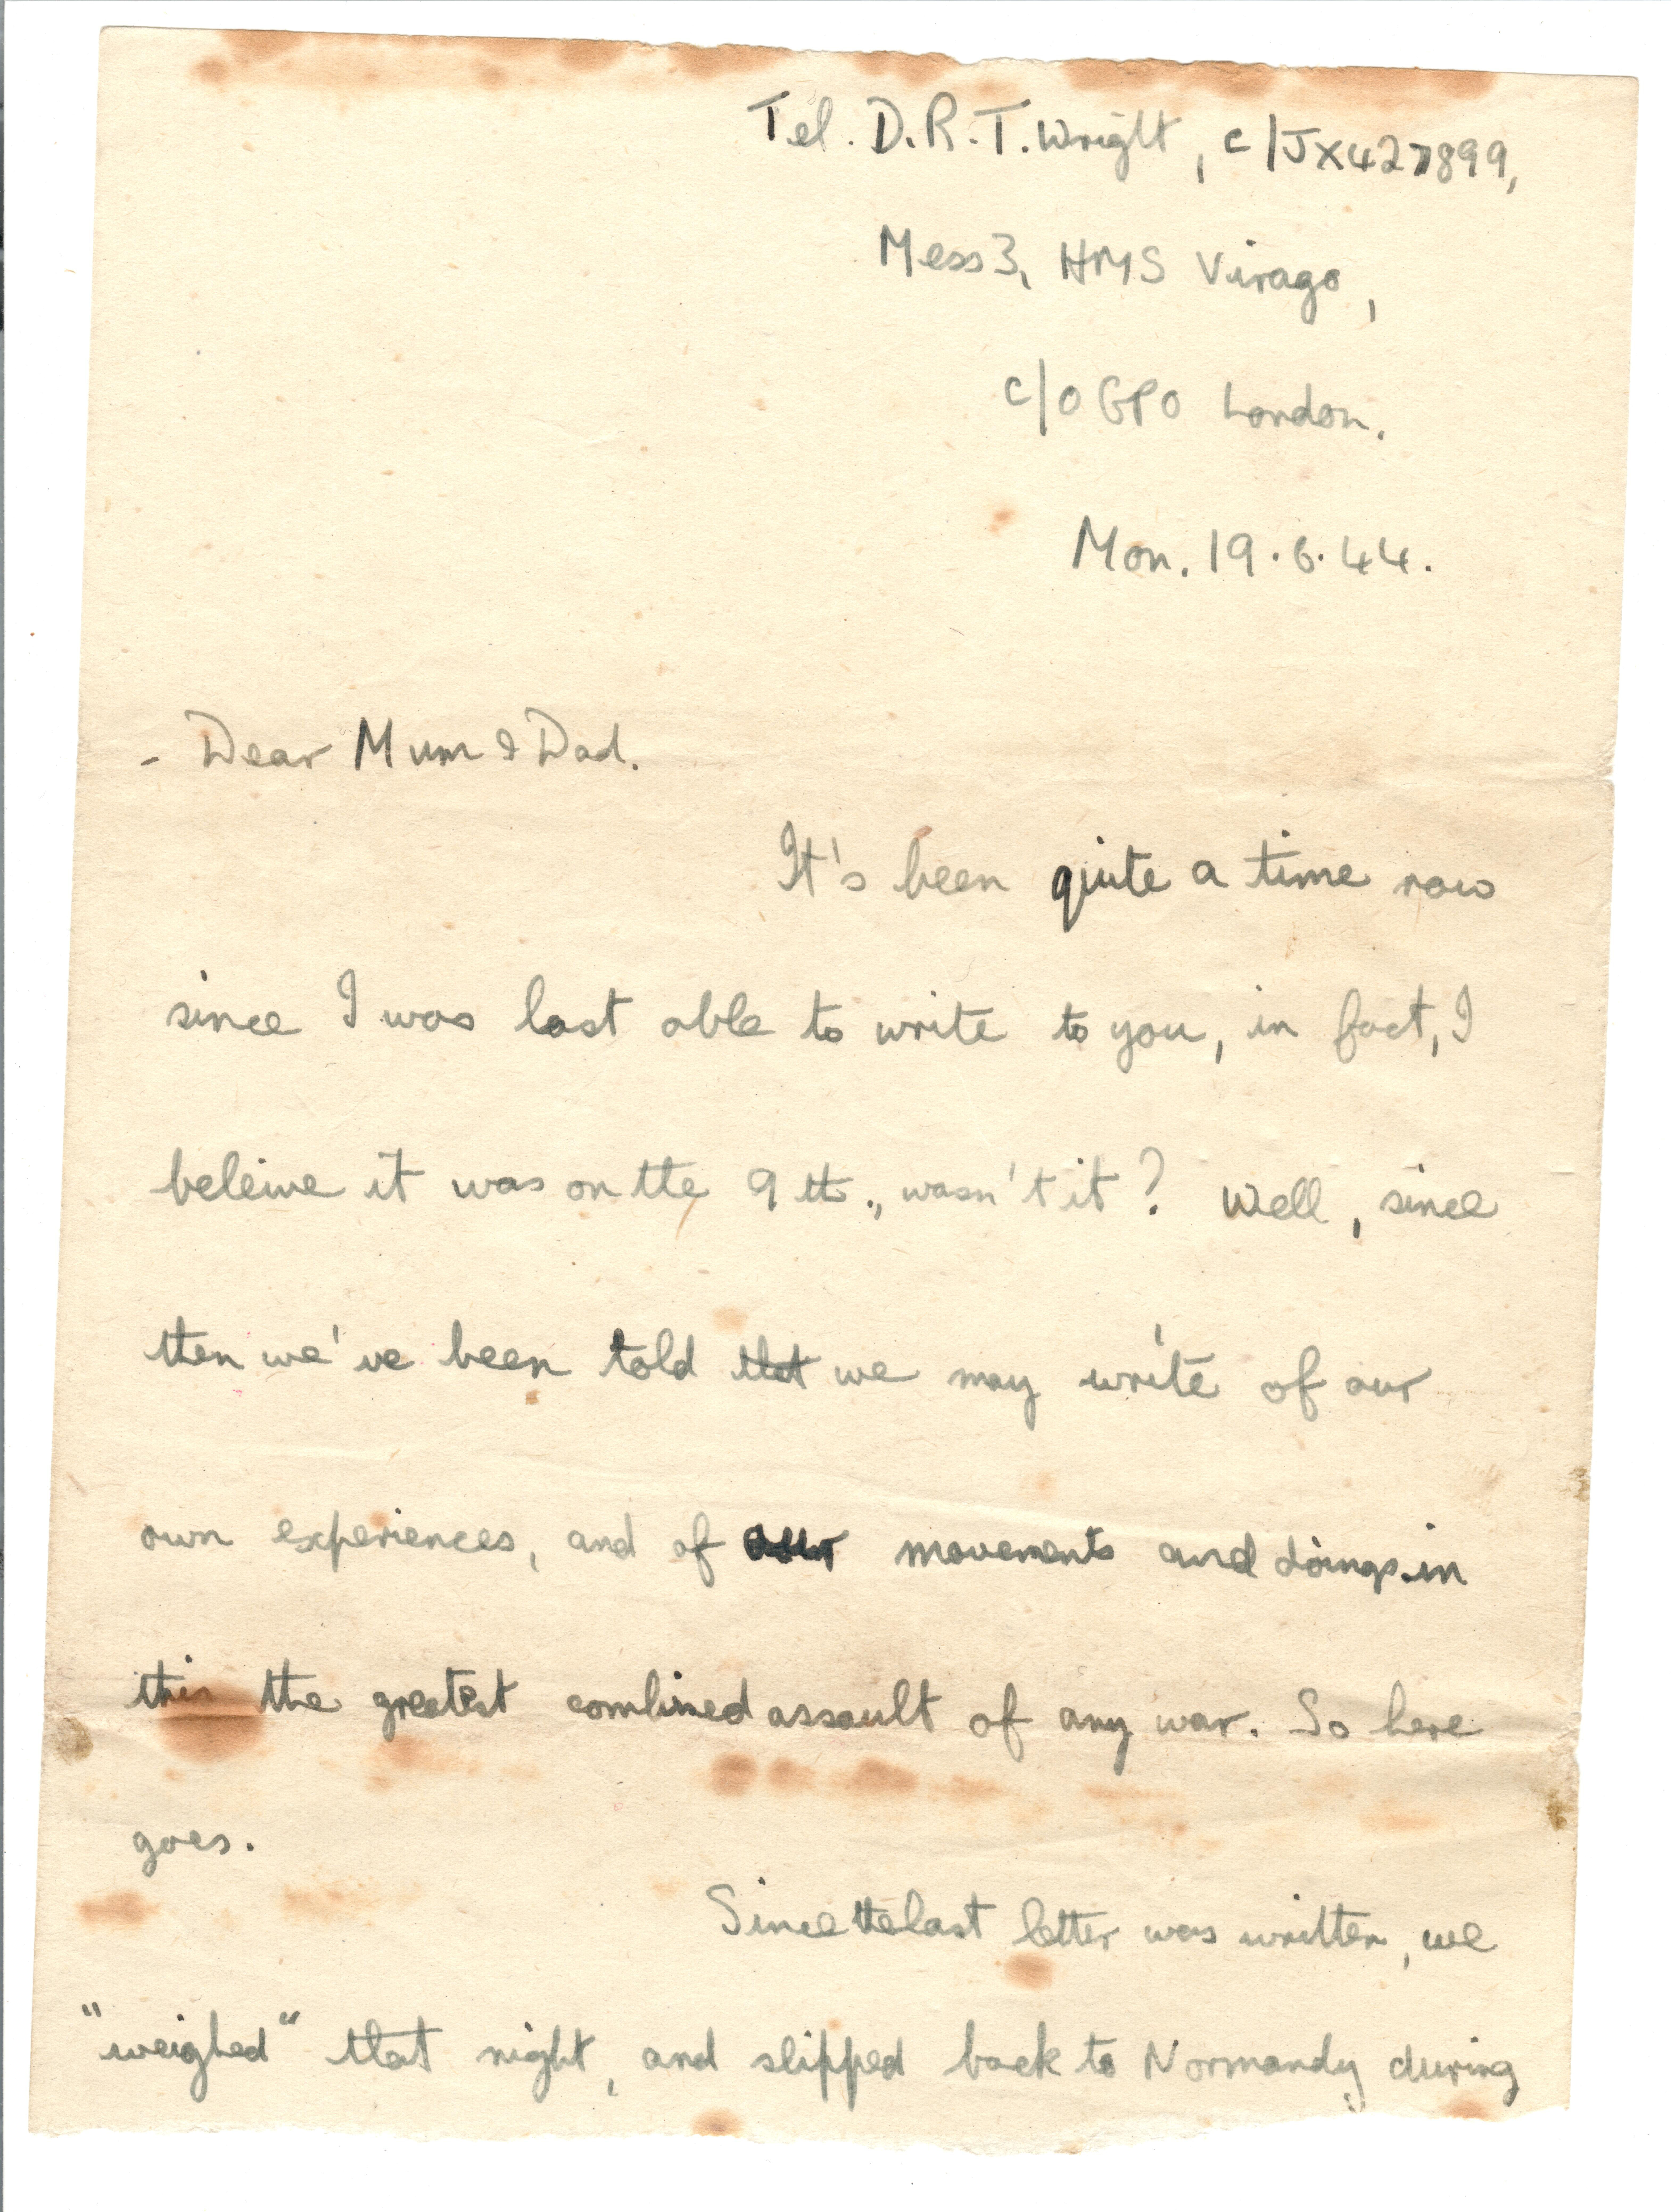 Tel. D.R.T. Wright, C/JX427899,
Mess 3, HMS Virago,
c/o GPO London.
Mon. 19.6.44.
- Dear Mum & Dad.
It's been quite a time now
since I was last able to write to you, in fact, I
beleive it was on the 9th., wasn't it? Well, since
then we've been told that we may write of our
own experiences, and of movements and doings in
this the greatest combined assault of any war. So here
goes.
Since the last letter was written, we
"weighed" that night, and slipped back to Normandy during